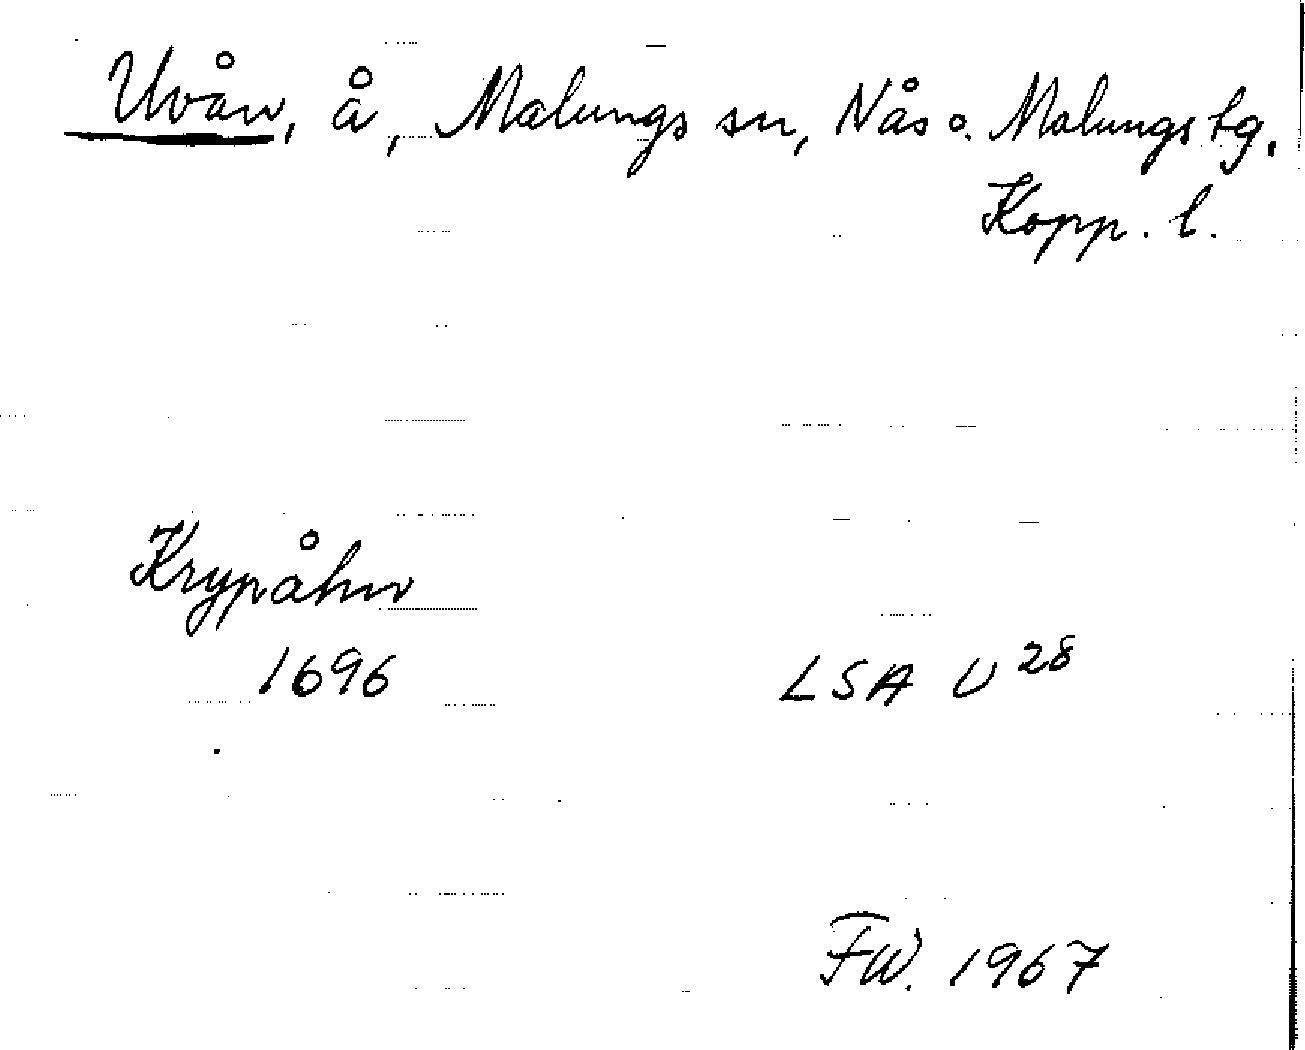 Uvån, å, Malungs sn, Nås o. Malungs tg.
Kopp. l.
Krypåhn
1696
LSA U 28
FW. 1967